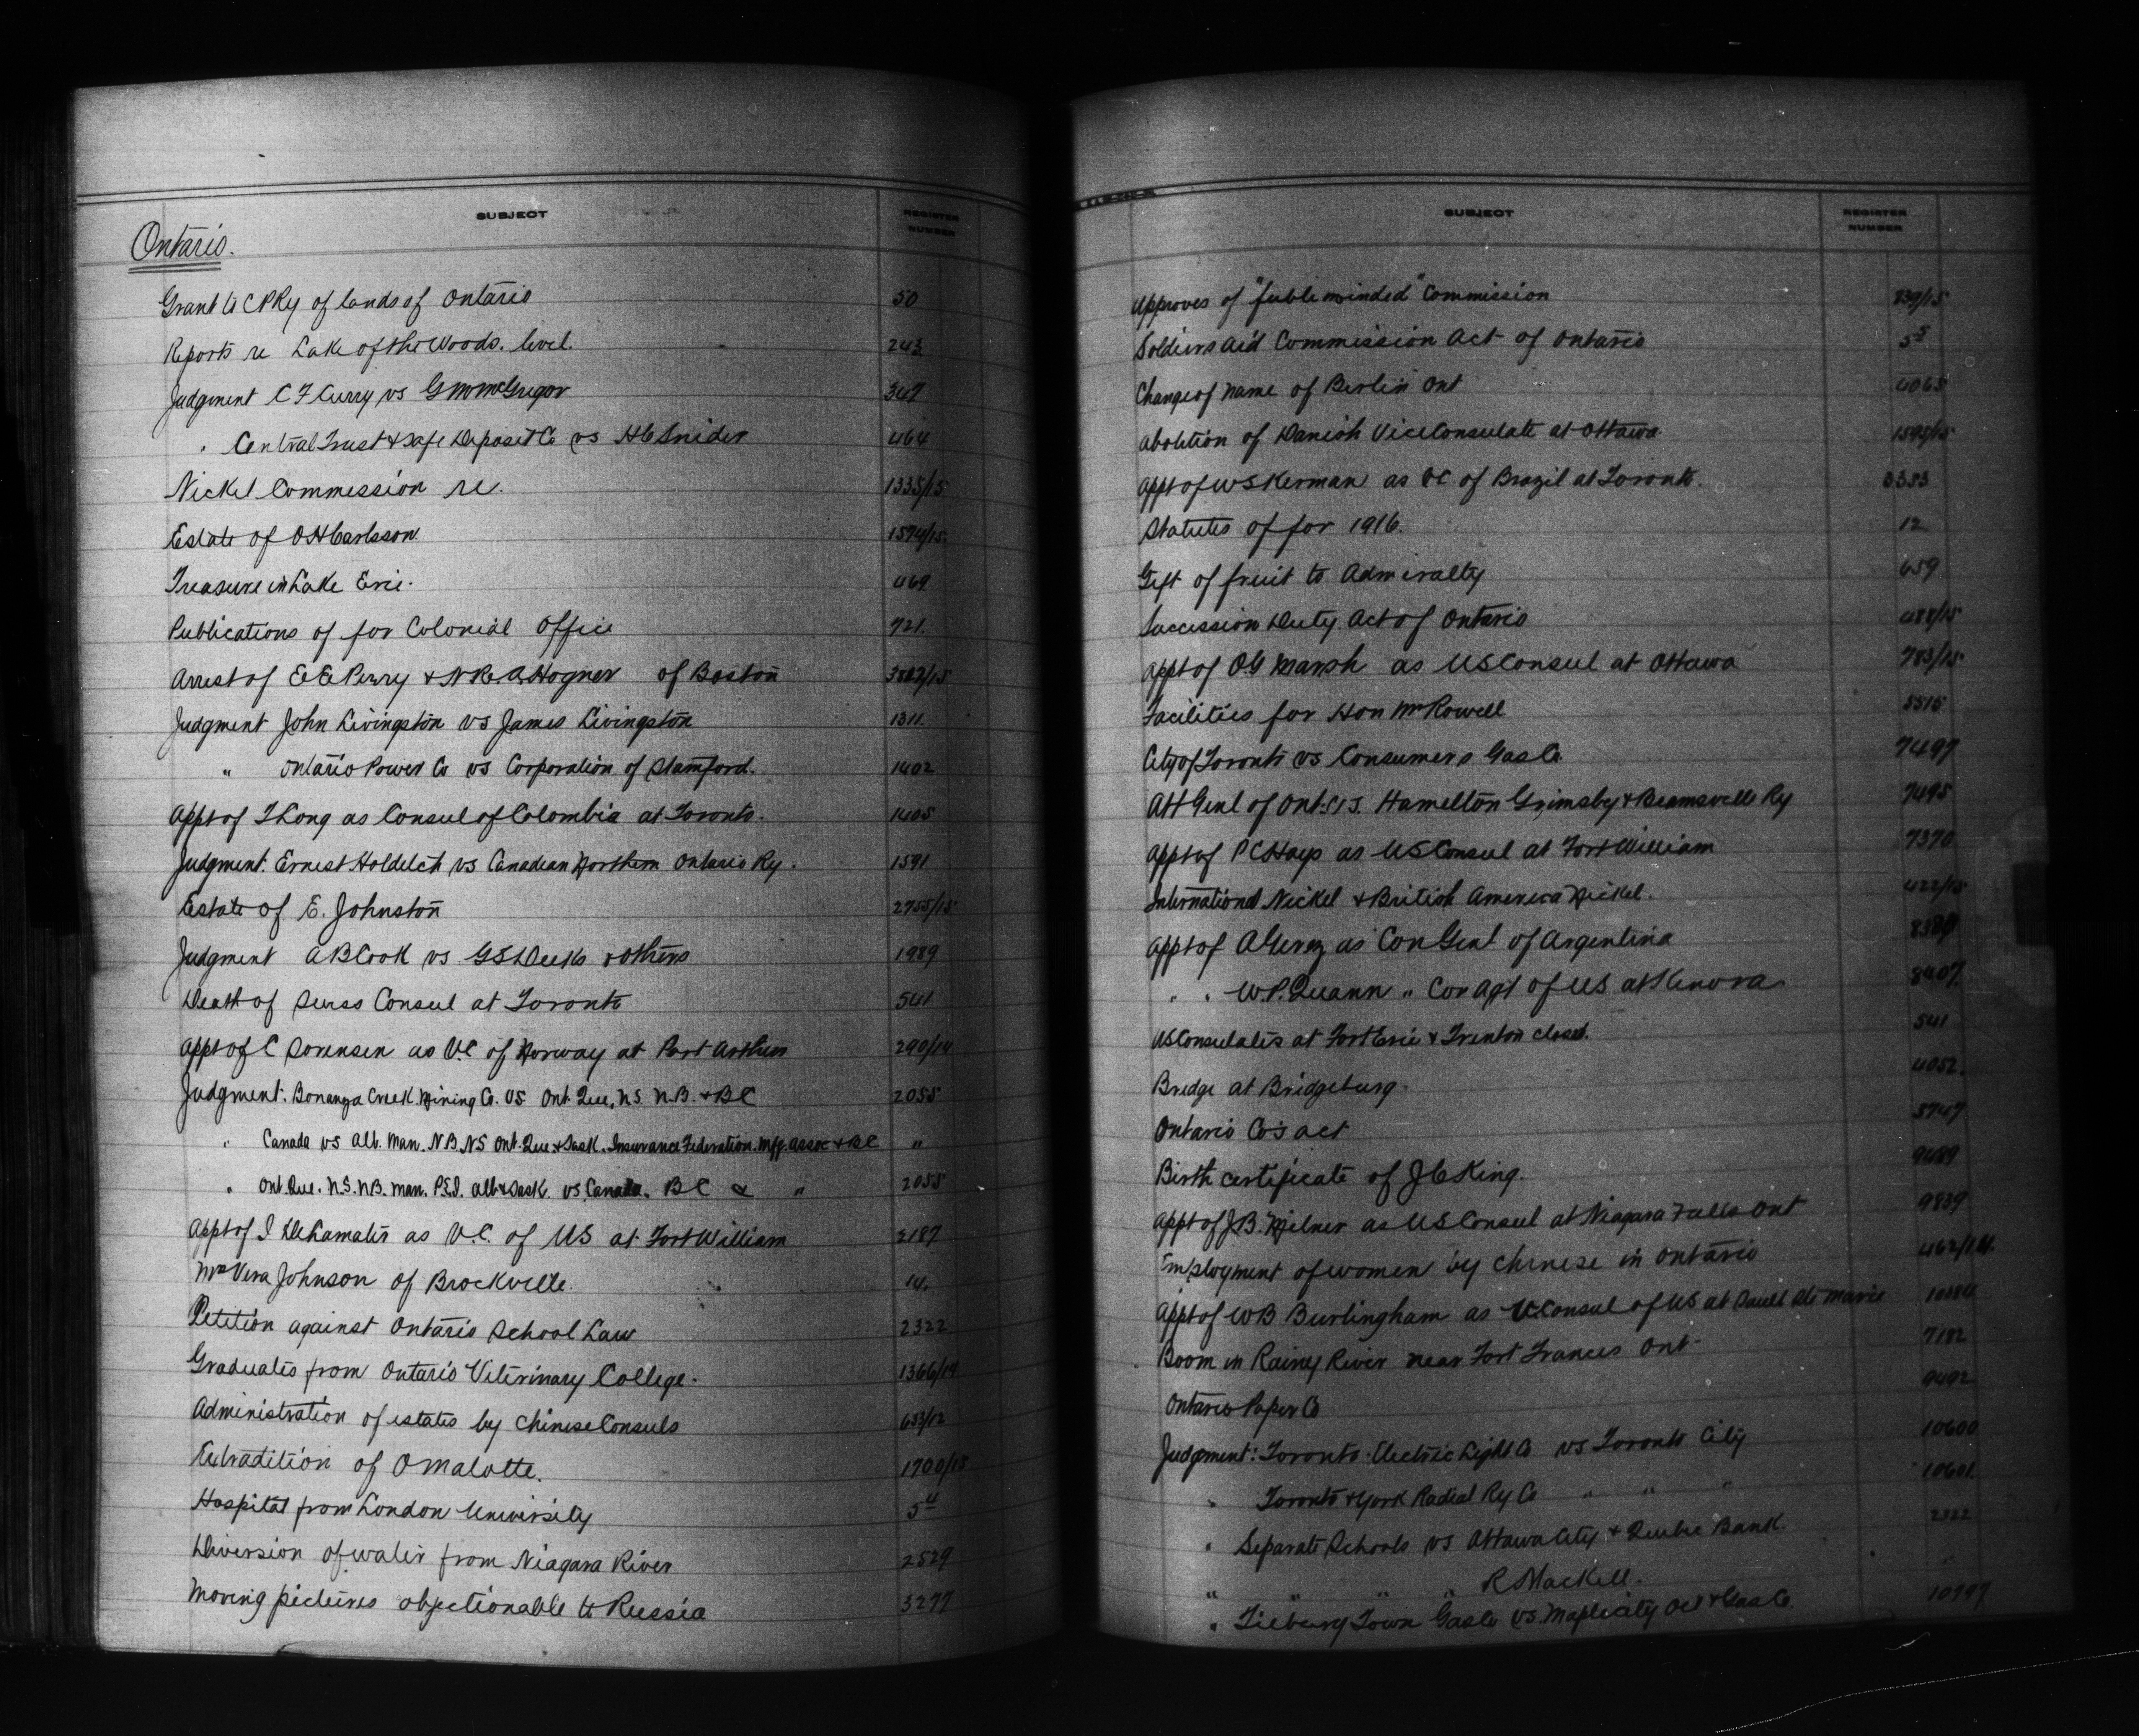 SUBJECT REGISTER NUMBER
Ontario.
Grant to CPRy of lands of Ontario 50
Reports re Lake of the Woods. level. 243
Judgment C F Curry vs G M McGregor 347
" Central Trust & Safe Deposit Co vs H C Snider 464
Nickel Commission re. 1335/15
Estate of O H Carlsson 1574/15
Treasure in Lake Erie. 469
Publications of for Colonial Office 721.
Arrest of E E Perry & N R. A. Hogner of Boston
Judgment John Livingston vs James Livingston 1311.
" Ontario Power Co vs Corporation of Stamford. 1402
Appt of T Long as Consul of Colombia at Toronto. 1405
Judgment. Ernest Holditch vs Canadian Northern Ontario Ry. 1591
Estate of E. Johnston 2755/15
Judgment A B Cook vs G S Deeks & others 1989
Death of Swiss Consul at Toronto 541
Appt of C Sorensen as V.C of Norway at Port Arthur 290/14
Judgment. Bonanza Creek Mining Co. vs Ont. Que, N.S. N.B. & BC 2055
" Canada vs Alb. Man. NB. NS Ont. Que. & Sask. Insurance Federation. Mfg. assoc & BC "
" Ont. Que. N.S. NB. Man. P.E.I. Alb & Sask. vs Canada. BC & " 2055
Appt of I Delamater as V.C. of US at Fort William 2187
Mrs Vera Johnson of Brockville. 14.
Petition against Ontario School Law 2322
Graduates from Ontario Veterinary College. 1366/14
Administration of estates by Chinese Consuls 633/12
Extradition of O Malotte. 1700/15
Hospital from London University 5 4
Diversion of water from Niagara River 2529
Moving pictures objectionable to Russia 3277
SUBJECT REGISTER NUMBER
Approves of "feebleminded" Commission 839/15
Soldiers Aid Commission Act of Ontario 5 5
Change of name of Berlin Ont 4065
Abolition of Danish Vice Consulate at Ottawa 1595/15
Appt of W S Kerman as VC of Brazil at Toronto. 3383
Statutes of for 1916. 12
Gift of fruit to Admiralty 659
Succession Duty Act of Ontario 488/15
Appt of O G Marsh as US Consul at Ottawa 783/15
Facilities for Hon Mr Rowell 5515
City of Toronto vs Consumers Gas Co. 7497
Att Genl of Ont. vs. Hamilton Grimsby & Beamsville Ry 7495
Appt of P C Hays as US Consul at Fort William 7370
International Nickel & British America Nickel. 422/15
Appt of as Con Genl of Argentina
" " W.P. Quann " Con Agt of US at Kenora 8407
US Consulates at Fort Erie & Trenton closed. 541
Bridge at Bridgeburg. 4052.
Ontario Co's act 5747
Birth certificate of J C King. 9489
Appt of J.B. Milner as US Consul at Niagara Falls Ont 9839
Employment of women by Chinese in Ontario 462/14.
Appt of W B Burlingham as V.Consul of US at Sault Ste Marie
Boom in Rainy River near Fort Frances Ont. 7182
Ontario Paper Co 9492
Judgment: Toronto Electric Light Co vs Toronto City 10600
" Toronto & York Radial Ry Co " " " 10601.
" Separate Schools vs Ottawa City & Quebec Bank. 2322
" " " " R Mackell. "
" Tilbury Town Gas Co vs Maple City Oil & Gas Co.